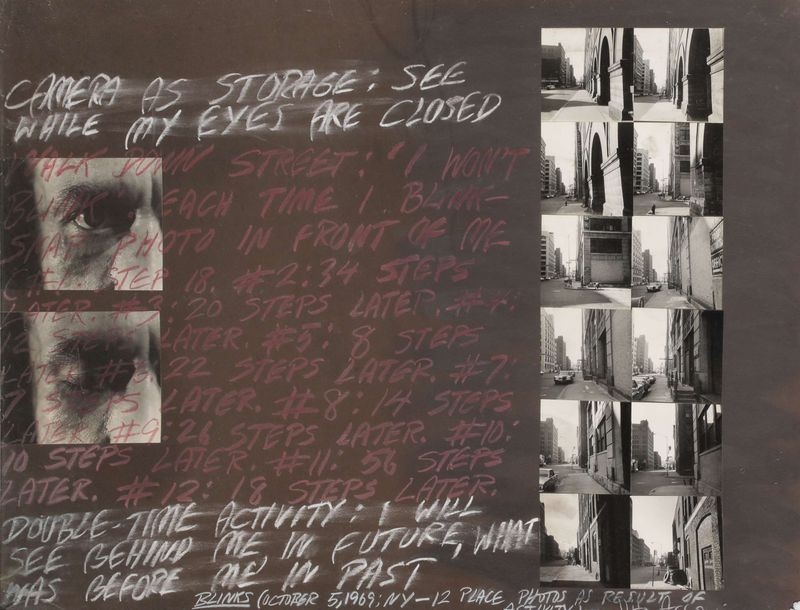 CAMERA AS STORAGE: SEE
WHILE MY EYES ARE CLOSED
WALK DOWN STREET: "I WON'T
BLINK EACH TIME I BLINK–
SNAP PHOTO IN FRONT OF ME
STEP 18. #2: 34 STEPS
LATER. #3: 20 STEPS LATER. #4:
12 STEPS LATER. #5: 8 STEPS
LATER. #6: 22 STEPS LATER. #7:
7 STEPS LATER. #8: 14 STEPS
LATER. #9: 26 STEPS LATER. #10:
10 STEPS LATER. #11: 56 STEPS
LATER. #12: 18 STEPS LATER.
DOUBLE-TIME ACTIVITY: I WILL
SEE BEHIND ME, IN FUTURE, WHAT
WAS BEFORE ME IN PAST
BLINKS (OCTOBER 5, 1969; NY – 12 PLACE PHOTOS AS RESULT OF